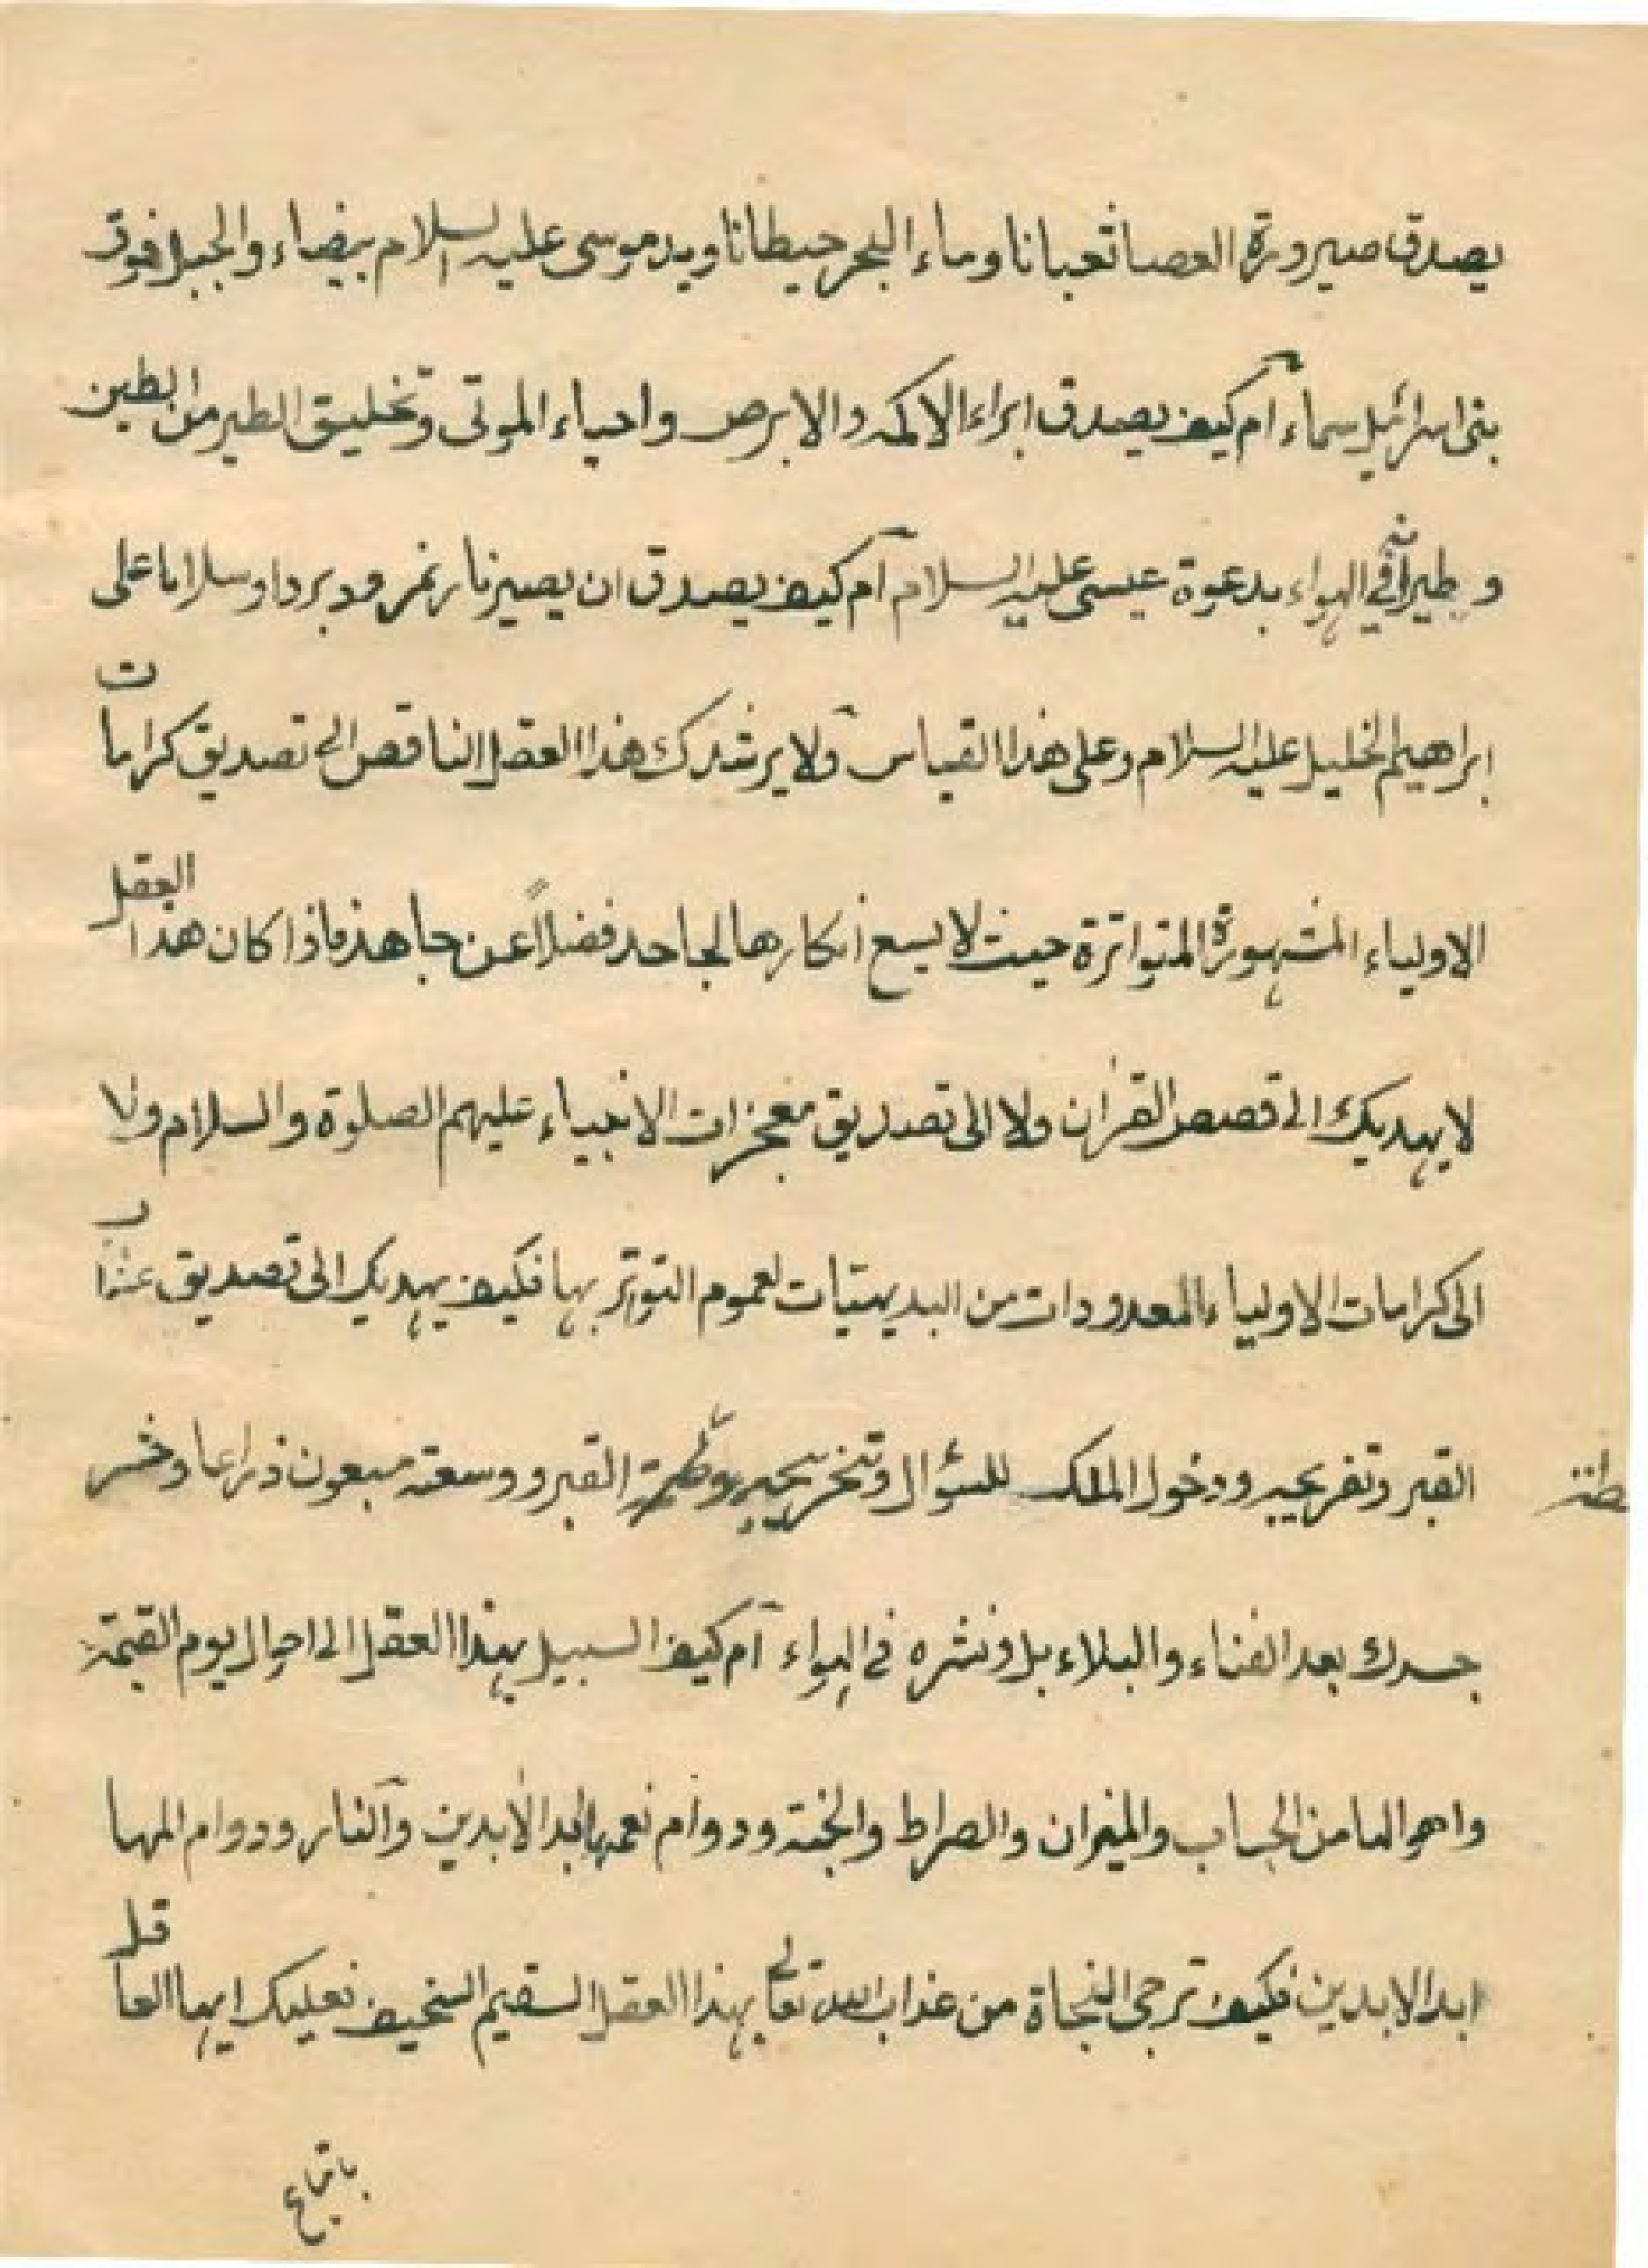 يصدق صيرورة العصا ثعبانا وماء البحر حيطانا ويد موسى عليه السلام بيضاء والجبل فوق
بنى اسرائيل سماء آم كيف يصدق ابراء الاكمه والابرص واحياء الموتى وتخليق الطير من الطين
و طيرانه في الهواء بدعوة عيسى عليه السلام آم كيف يصدق ان يصير نار نمرود بردا وسلاما على
ابراهيم الخليل عليه السلام وعلى هذا القياس ولا يرشدك هذا العقل الناقص الى تصديق كرامات
الاولياء المشهورة المتواترة حيث لا يسع انكارها لجاحد فضلاً عن جاهد فاذا كان هذا العقل
لا يهديك الى قصص القرآن ولا الى تصديق معجزات الانبياء عليهم الصلوة والسلام ولا
الى كرامات الاولياء المعدودات من البديهيّات لعموم التواتر بها فكيف يهديك الى تصديق عذاب
القبر وتفريحيه ودخول الملك للسؤال و القبر ووسعته سبعون ذراعا وحشر
جسدك بعد الفناء والبلاء بل ونشره في الهواء آم كيف السبيل بهذا العقل الى احوال يوم القيمة
واهوالها من الحساب والميزان والصراط والجنة ودوام نعمها ابد الأبدين والنار ودوام المها
ابد الابدين فكيف ترجى النجاة من عذاب الله تعالى بهذا العقل السقيم السخيف فعليك ايها العاقل
باتباع